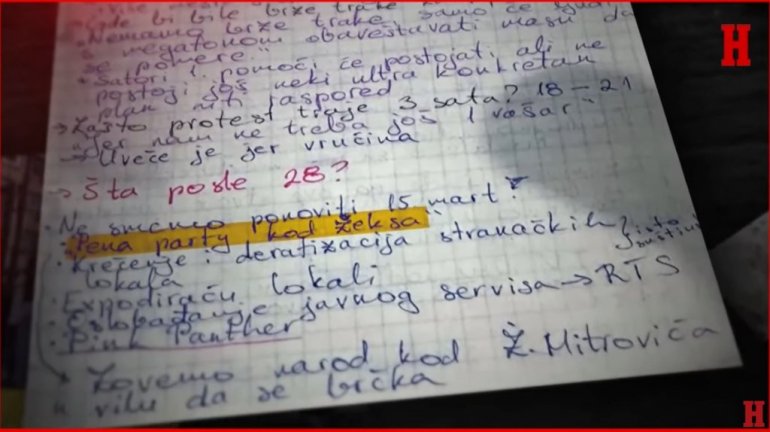 gde bi bile brze trake
• Nemamo brze trake samo će
s megafonom obaveštavati masu da
se pomere."
• Šatori 1. pomoći će postojati, ali ne
postoji još neki ultra konkretan
plan niti raspored
→ Zašto protest traje 3 sata? 18-21
jer nam ne treba još 1 vašar
→ Uveče je jer vrućina
→ Šta posle 28?
• Ne smemo ponoviti 15 mart!
• Pena party kod Žeksa
• Krečenje i deratizacija stranačkih
lokala
• Expodiraću lokali
• Oslobađanje javnog servisa → RTS
• Pink Panther
Zovemo narod kod Ž. Mitrovića
u vilu da se brčka
H
H